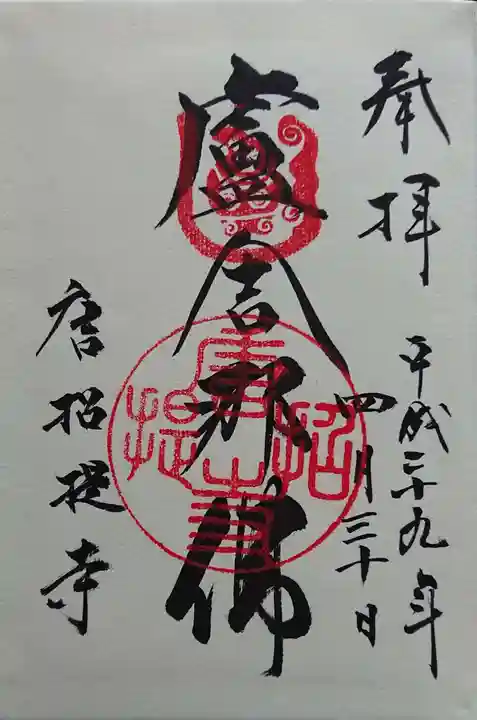 奉拝
平成二十九年
四月三十日
盧舎那佛
唐招提寺
唐招提寺